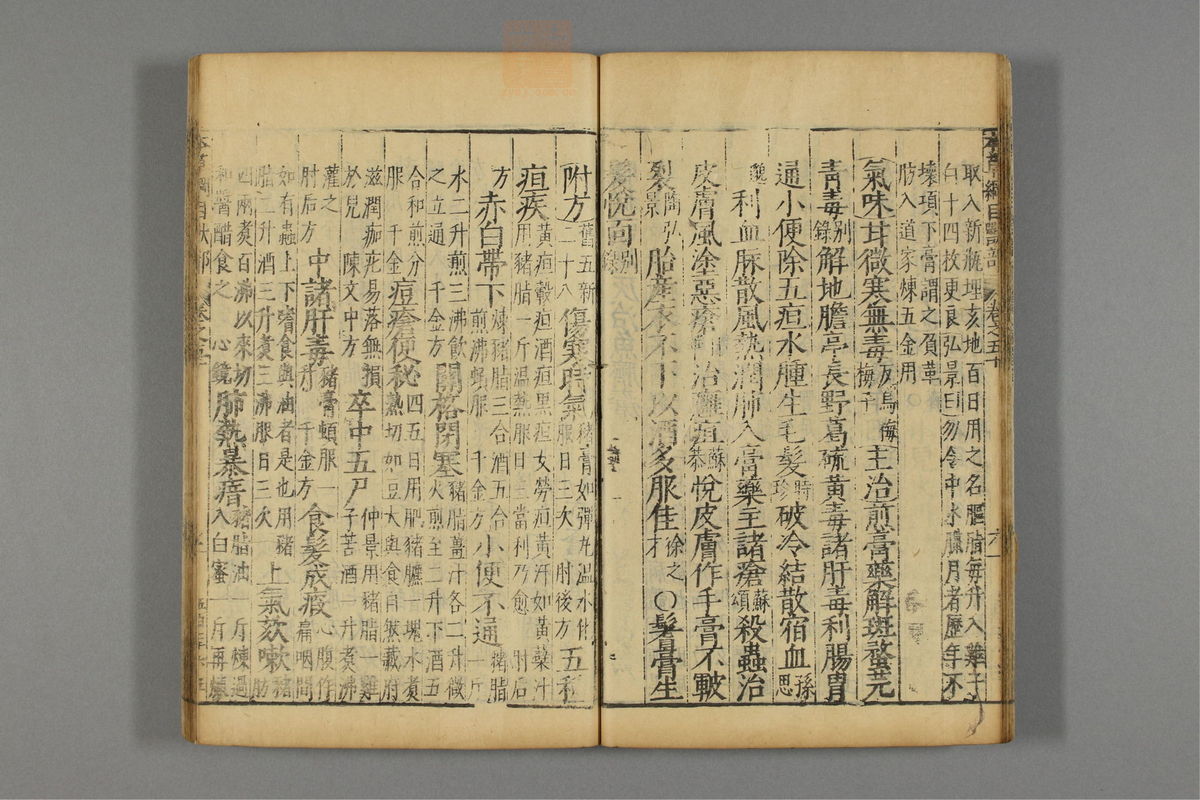 本草綱目獸部 卷之五十
取入新瓶埋亥地百日用之名𦛨脂每升入雞子
白十四枚更良弘景曰勿令中水臘月者歷年不
壞項下膏謂之負革
肪入道家煉五金用
氣味甘微寒無毒反烏梅
梅子主治煎膏藥解斑蝥芫
青毒別
錄解地膽亭長野葛硫黃毒諸肝毒利腸胃
通小便除五疸水腫生毛髮時
珍破冷結散宿血孫
思
邈利血脉散風熱潤肺入膏藥主諸瘡蘇
頌殺蟲治
皮膚風塗惡瘡 治癰疽蘇
恭悅皮膚作手膏不皸
裂陶弘
景胎產衣不下以酒多服佳徐之
才〇鬐膏生
髮悅面別
錄
附方舊五新
二十八傷寒時氣豬膏如彈丸溫水化
服日三次 肘後方五種
疸疾黃疸穀疸酒疸黑疸女勞疸黃汗如黃蘗汁
用豬脂一斤溫熱服日三當利乃愈 肘后
方赤白帶下煉豬脂三合酒五合
煎沸頓服 千金方小便不通豬脂
一斤
水二升煎三沸飲
之立通 千金方關格閉塞豬脂薑汁各二升微
火煎至二升下酒五
合和煎分
服 千金痘瘡便秘四五日用肥豬膘一塊水煮
熟切如豆大與食自然臟腑
滋潤痂疕易落無損
於兒 陳文中方卒中五尸仲景用豬脂一雞
子苦酒一升煮沸
灌之
肘后方中諸肝毒豬膏頓服一
升 千金方食髮成瘕心腹作痛咽間
如有蟲上下嗜食與油者是也用豬
脂二升酒三升煮三沸服日三次上氣欬嗽豬肪
四兩煮百沸以來切
和醬醋食之 心鏡肺熱暴瘖豬脂油一斤煉過
入白蜜一斤再煉